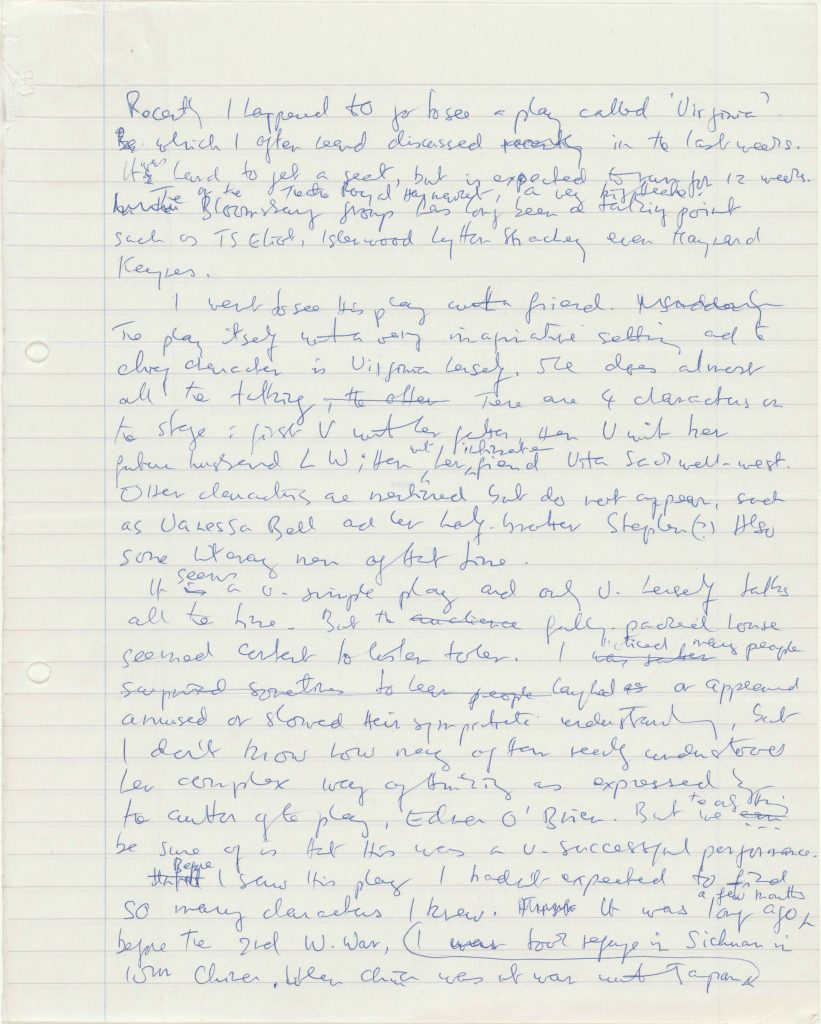 Recently I happened to go to see a play called 'Virginia'.
which I often heard discussed recently in the last weeks.
It was hard to get a seat, but is expected to run for 12 weeks.
The of the Theatre Royal Haymarket, a very
Bloomsbury group has long been a talking point
such as TS Eliot, Isherwood Lytton Strachey even Maynard
Keynes.
I went to see this play with a friend.
The play itself with a very imaginative setting and the
chief character is Virginia herself. She does almost
all the talking, the other There are 4 characters on
the stage: first V with her father then V with her
future husband L W; then with her friend Vita Sackwell-west.
Other characters are mentioned but do not appear, such
as Vanessa Bell and her half-brother Stephen(?) Also
some literary men of that time.
It seems a v. simple play and only V. herself talks
all the time. But the audience fully packed house
seemed content to listen to her. I noticed many people
surprised sometimes to hear people laughed as or appeared
amused or showed their sympathetic understanding, but
I don't know how many of them really understood
her complex way of thinking as expressed by
the author of the play, Edner O'Brien. But the only thing we can
be sure of is that this was a v. successful performance.
Before I saw this play I hadn't expected to find
so many characters I knew. It was long ago, a few months
before the 2nd W. War, I was took refuge in Sichuan in
when China was at war with Japan